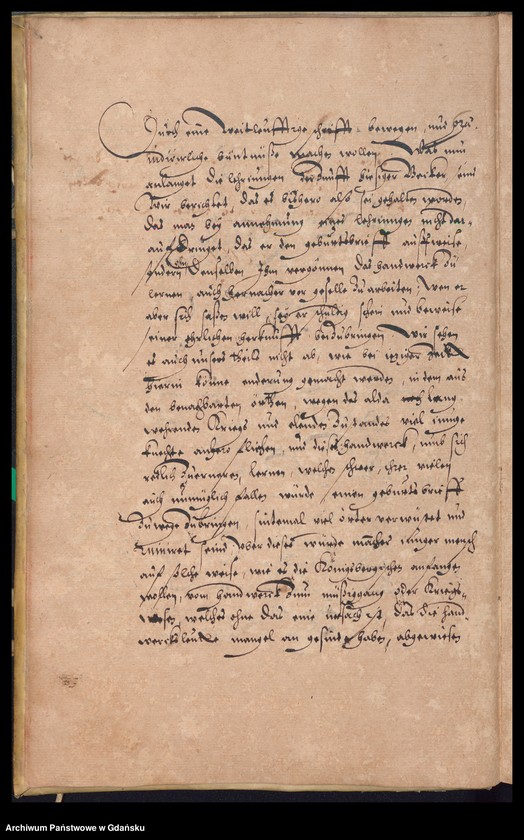 Durch eine Weitleufftige schrifft bewegen, und
machen wollen. Was nun
anlanget die lehrjungen der Zunfft hiesiger Becker, sind
Wir berichtet, das es bishero also sei gehalten worden,
das man bey annehmung eines lehrjungen nicht dar-
auf dringet, das er den geburtsbrieff auffweise
sondern ohn denselben Ihm vergönnen das handwerck zu
lernen, auch hernacher vor geselle zu arbeiten; Wen er
aber sich setzen will, sey er schuldig schein und beweise
seiner ehrlichen herkunfft beizubringen. Wir sehen
es auch unsers theils nicht ab, wie bei itziger Zeit
hierin könne enderung gemacht werden, in dem aus
den benachbarten örthen, wegen des alda lang
wehrenden Kriegs und elenden Zustandes viel junge
Knechte anhero fliehen, und dieses handwerck, umb sich
redlich zuernehren, lernen, welchen schwer, ihrer vielen
auch unmüglich fallen würde einen geburtsbrieff
zu wege zubringen, sintemal viel örter verwüstet und
ruiniret seind. Uber dieses würde mancher junger mensch
auf solche weise, wie es die Königsbergischen anfangen
wollen, vom handwerck zum müssiggang oder Kriegs-
wesen, welches ohne das eine ursach ist, das die hand-
wercksleute mangel an gesind haben, abgewiesen
Archiwum Państwowe w Gdańsku